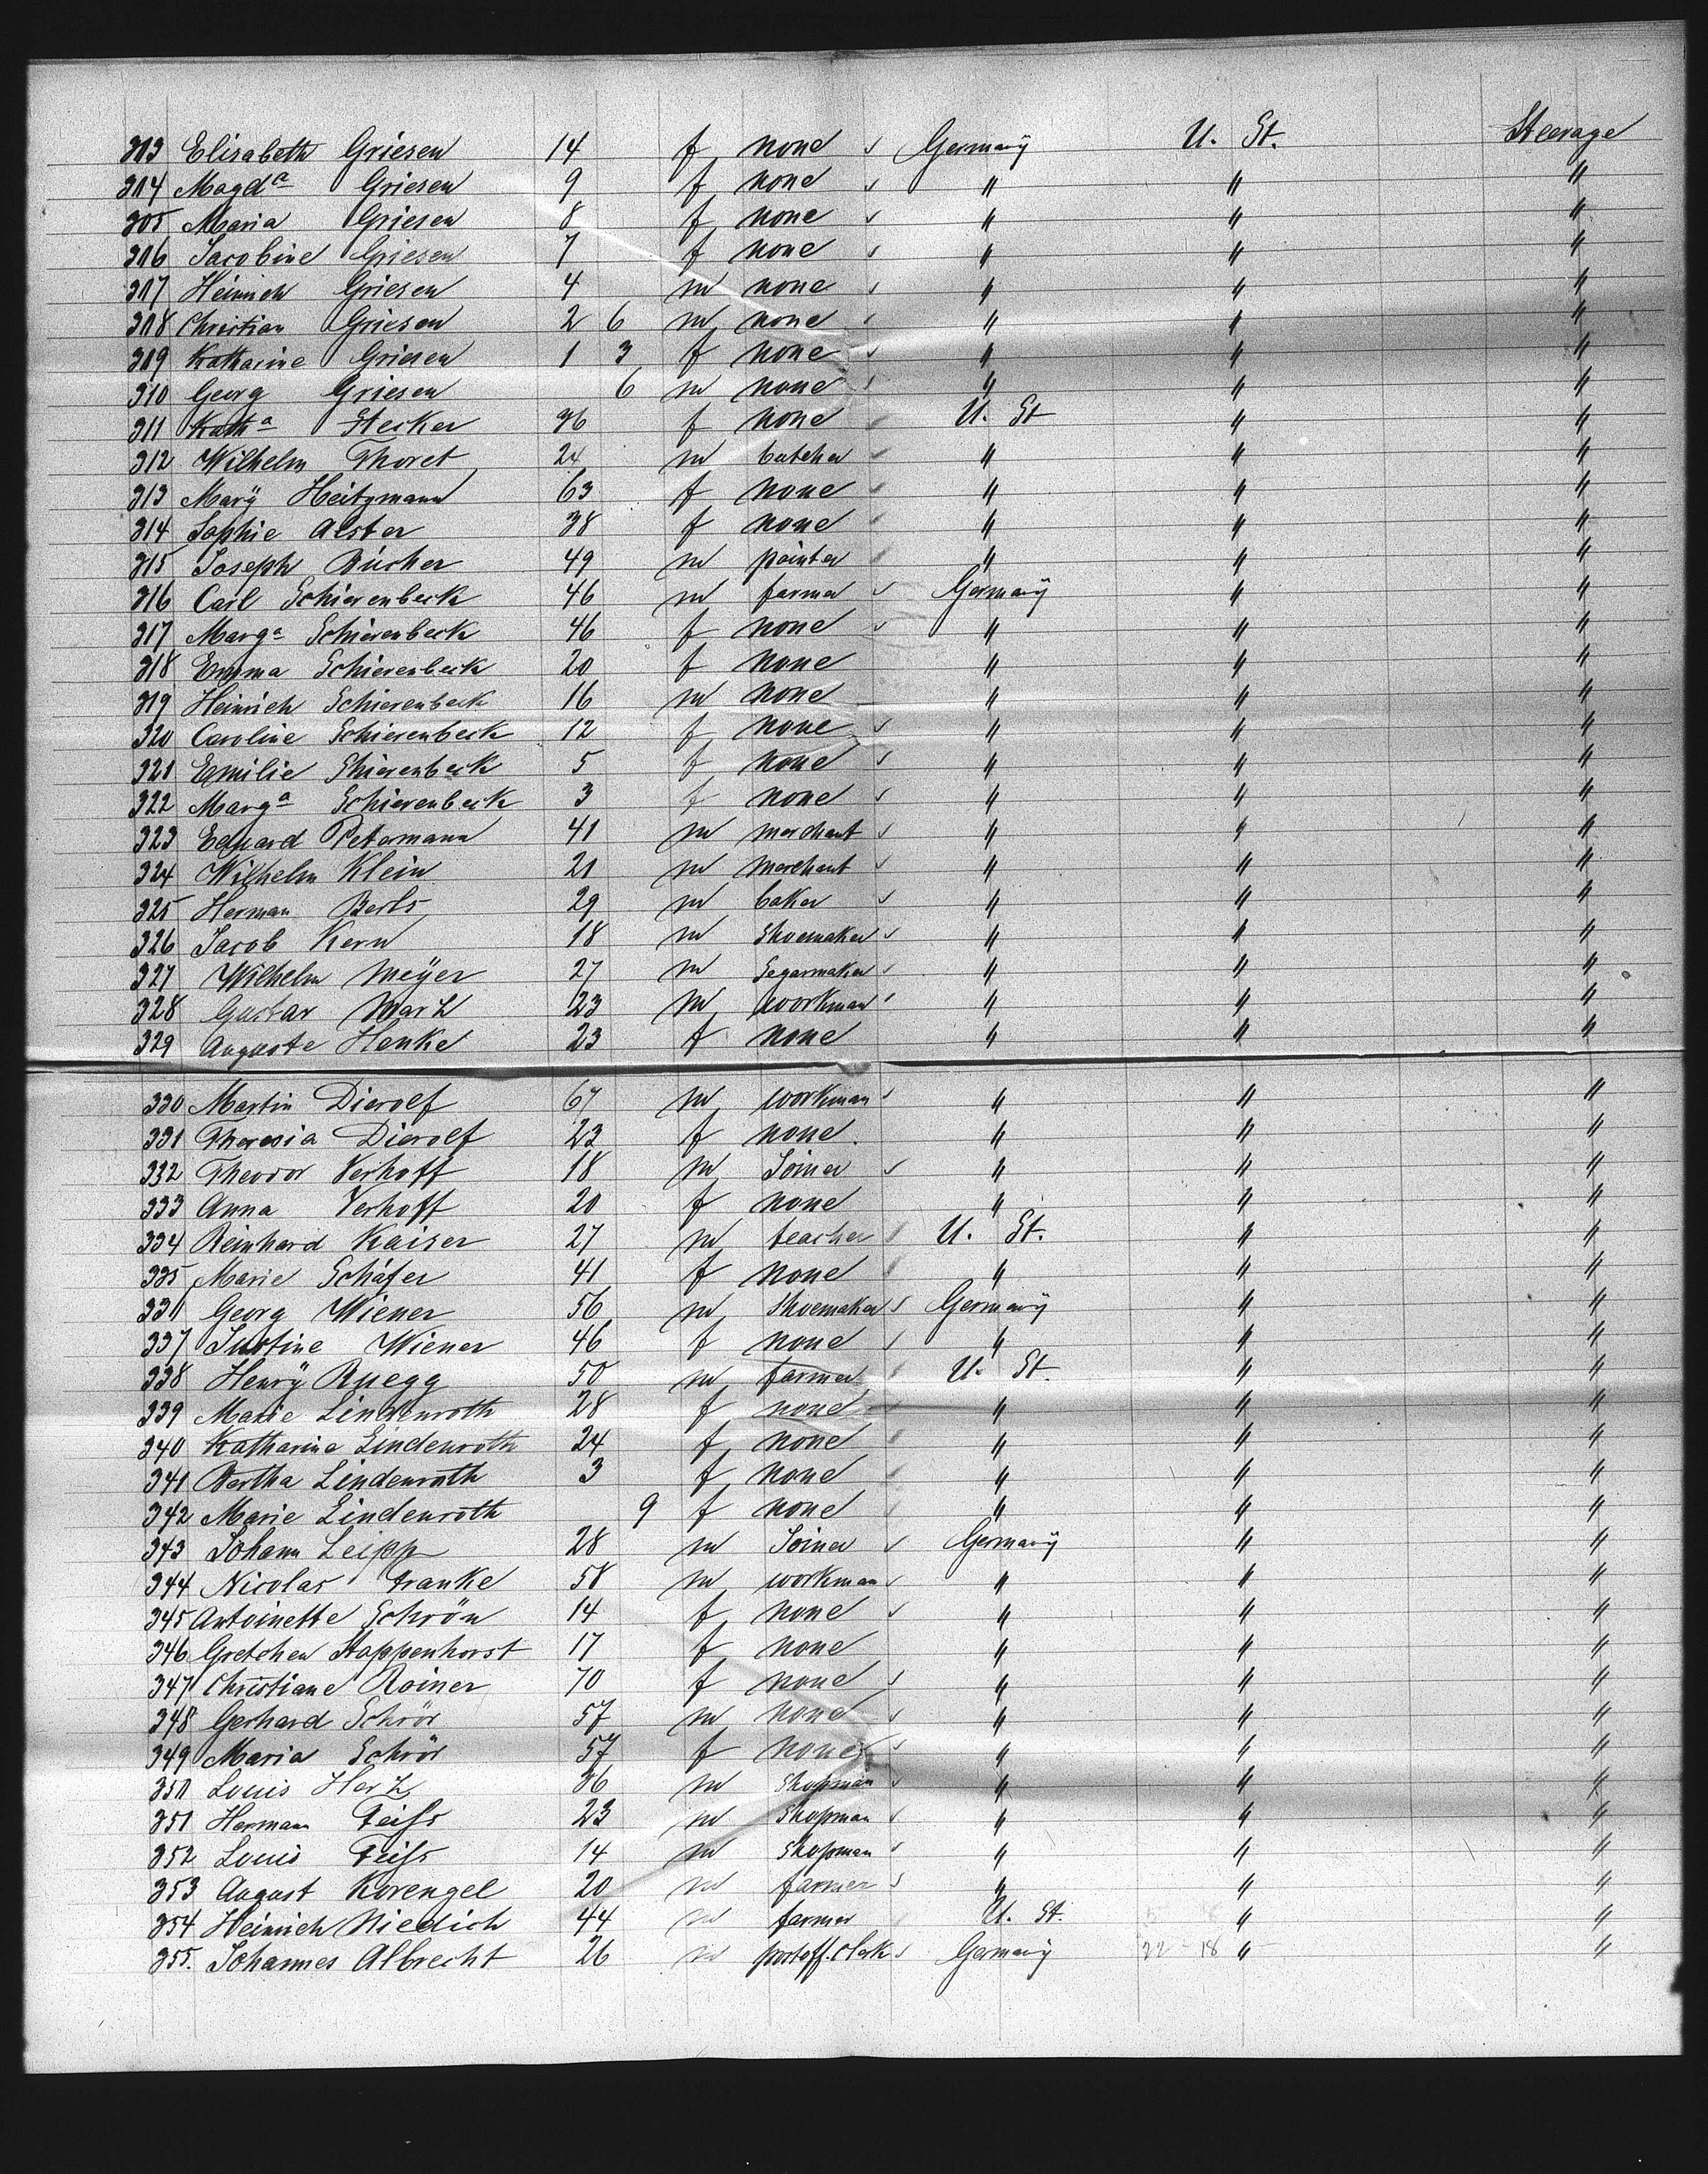 303 Elisabeth Griesen 14 f none Germany U. St. Steerage
304 Magda Griesen 9 f none " " "
305 Maria Griesen 8 f none " " "
306 Jacobine Griesen 7 f none " " "
307 Heinrich Griesen 4 m none " " "
308 Christian Griesen 2 6 m none " " "
309 Katharine Griesen 1 3 f none " " "
310 Georg Griesen 6 m none " " "
311 Katha Stecker 36 f none U. St " "
312 Wilhelm Thoret 24 m butcher " " "
313 Mary Heitzmann 63 f none " " "
314 Sophie Alster 38 f none " " "
315 Joseph Bücher 49 m painter " " "
316 Carl Schierenbeck 46 m farmer Germany " "
317 Marga Schierenbeck 46 f none " " "
318 Emma Schierenbeck 20 f none " " "
319 Heinrich Schierenbeck 16 m none " " "
320 Caroline Schierenbeck 12 f none " " "
321 Emilie Shierenbeck 5 f none " " "
322 Marga Schierenbeck 3 f none " " "
323 Eduard Petermann 41 m merchant " " "
324 Wilhelm Klein 21 m merchant " " "
325 Herman Berls 29 m baker " " "
326 Jacob Kern 18 m Shoemaker " " "
327 Wilhelm Meyer 27 m Segarmaker " " "
328 Gustav Marx 23 m workman " " "
329 Auguste Henke 23 f none " " "
330 Martin Dierolf 67 m workman " " "
331 Theresia Dierolf 23 f none " " "
332 Theodor Verhoff 18 m Joiner " " "
333 Anna Verhoff 20 f none " " "
334 Reinhard Kaiser 27 m teacher U. St. " "
335 Marie Schäfer 41 f none " " "
336 Georg Wiener 56 m Shoemaker Germany " "
337 Justine Wiener 46 f none " " "
338 Henry Ruegg 50 m farmer U. St. " "
339 Marie Lindenroth 28 f none " " "
340 Katharina Lindenroth 24 f none " " "
341 Bertha Lindenroth 3 f none " " "
342 Marie Lindenroth 9 f none " " "
343 Johann Leipp 28 m Joiner Germany " "
344 Nicolas Franke 58 m workman " " "
345 Antoinette Schrön 14 f none " " "
346 Gretchen Stappenhorst 17 f none " " "
347 Christiane Roiner 70 f none " " "
348 Gerhard Schrör 57 m none " " "
349 Maria Schrör 57 f none " " "
350 Louis Herz 36 m Shopman " " "
351 Hermann Feiss 23 m Shopman " " "
352 Louis Feiss 14 m Shopman " " "
353 August Korengel 20 m farmer " " "
354 Heinrich Niedich 44 m farmer U. St. " "
355. Johannes Albrecht 26 m postoff. clerk Germany 22-18 " "